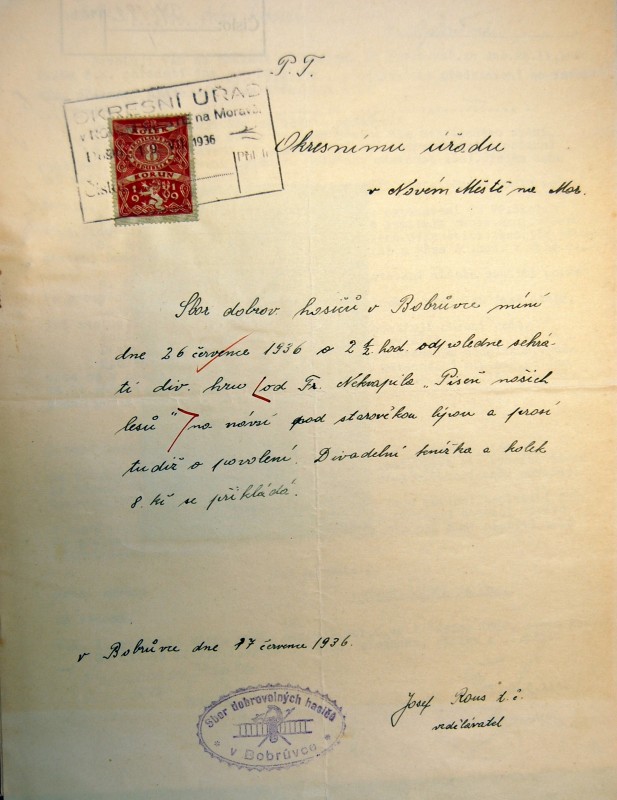 P. T.
OKRESNÍ ÚŘAD
na Moravě
1936
8
KORUN
Okresnímu úřadu
v Novém Městě na Mor.
Sbor dobrov. hasičů v Bobrůvce míní
dne 26 července 1936 o 2 1/2 hod. odpoledne sehrá-
ti div. hru od Fr. Nekvapila „Píseň našich
lesů" na návsi pod starověkou lípou a prosí
tudíž o povolení. Divadelní knížka a kolek
8. kč se přikládá.
v Bobrůvce dne 17 července 1936.
Sbor dobrovolných hasičů
v Bobrůvce
Josef Rous t. č.
vzdělavatel